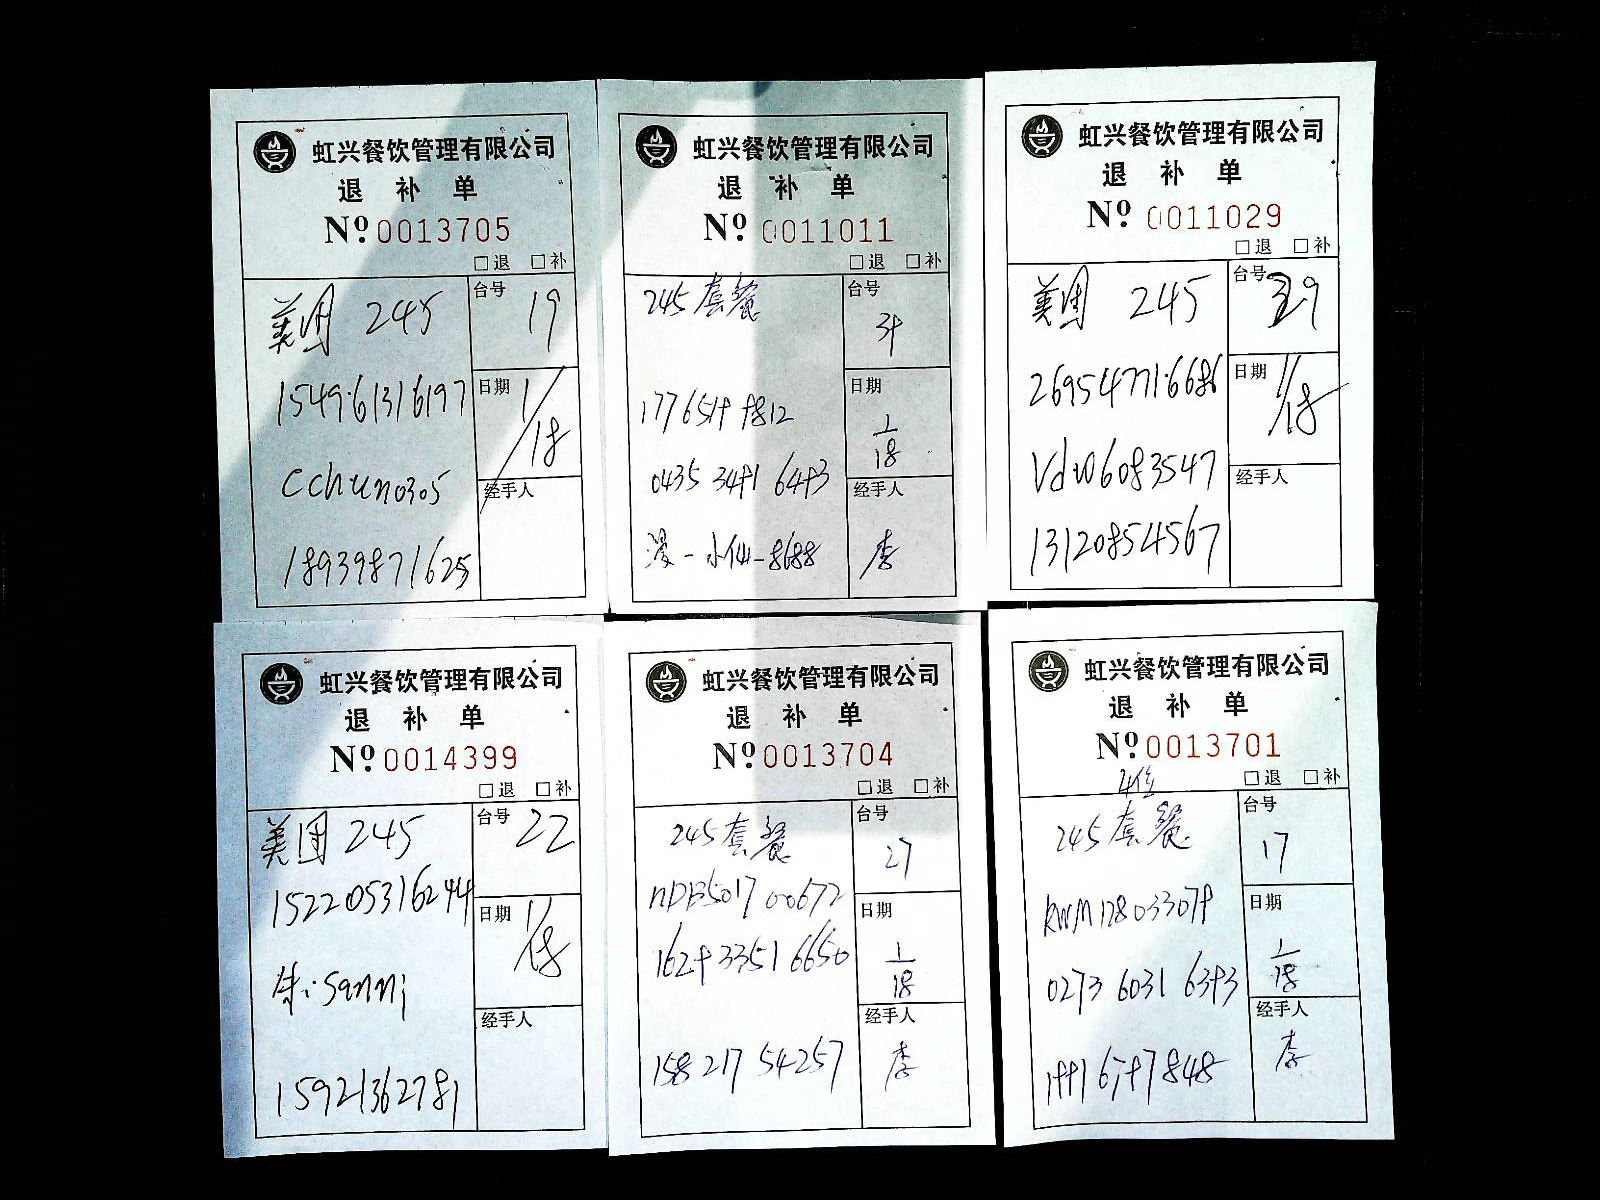 虹兴餐饮管理有限公司
退 补 单
Nº 0013705
□退 □补
美团 245
台号 19
154961316197
日期 1/18
cchun0305
经手人
18939871625
虹兴餐饮管理有限公司
退 补 单
Nº 0011011
□退 □补
245 套餐
台号
日期
1/18
经手人
李
虹兴餐饮管理有限公司
退 补 单
Nº 0011029
□退 □补
美团 245
台号 39
269547716686
日期 1/18
Vdw06083547
经手人
13120854567
虹兴餐饮管理有限公司
退 补 单
Nº 0014399
□退 □补
美团 245
台号 22
152205316244
日期 1/18
朱:Sanni
经手人
15921362781
虹兴餐饮管理有限公司
退 补 单
Nº 0013704
□退 □补
245 套餐
台号 27
日期
1629 3351 6650
1/18
经手人
158 217 54257
李
虹兴餐饮管理有限公司
退 补 单
Nº 0013701
□退 □补
4位
245 套餐
台号 17
KWM128033079
日期
1/18
0273 6031 6393
经手人
李